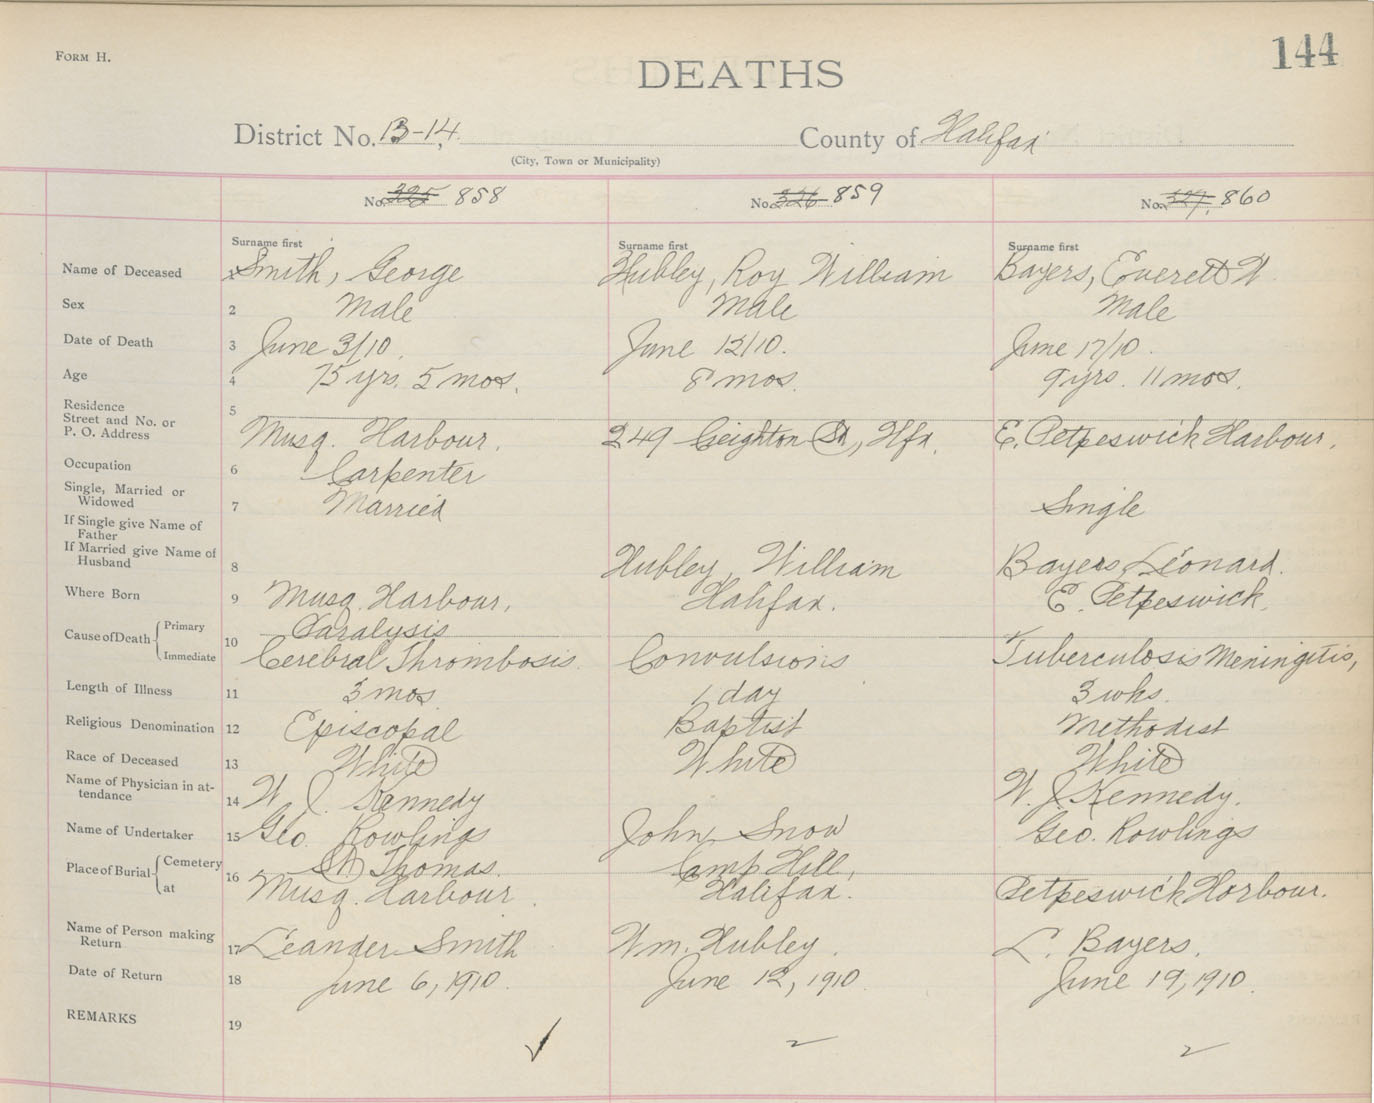 FORM H.
144
DEATHS
District No. B-14. County of Halifax
(City, Town or Municipality)
No. 325 858 No. 326 859 No. 327. 860
Surname first Surname first Surname first
Name of Deceased 1 Smith, George Hubley, Roy William Bayers, Everett W
Sex 2 Male Male Male
Date of Death 3 June 3/10. June 12/10. June 17/10.
Age 4 75 yrs. 5 mos. 8 mos. 9 yrs. 11 mos.
Residence
Street and No. or
P. O. Address 5 Musq. Harbour. 249 Creighton St, Hfx. E. Petpeswick Harbour.
Occupation 6 Carpenter
Single, Married or
Widowed 7 Married Single
If Single give Name of
Father
If Married give Name of
Husband 8 Hubley, William Bayers Leonard.
Where Born 9 Musq. Harbour. Halifax. E. Petpeswick.
Cause of Death Primary 10 Paralysis
Immediate Cerebral Thrombosis. Convulsions Tuberculosis Meningitis,
Length of Illness 11 3 mos 1 day 3 wks.
Religious Denomination 12 Episcopal Baptist Methodist
Race of Deceased 13 White White White
Name of Physician in at-
tendance 14 W. J. Kennedy W. J. Kennedy.
Name of Undertaker 15 Geo. Rowlings John Snow Geo. Rowlings
Place of Burial Cemetery 16 St Thomas. Camp Hill,
at Musq. Harbour. Halifax. Petpeswick Harbour.
Name of Person making
Return 17 Leander Smith Wm. Hubley. L. Bayers.
Date of Return 18 June 6, 1910. June 12, 1910 June 19, 1910.
REMARKS 19